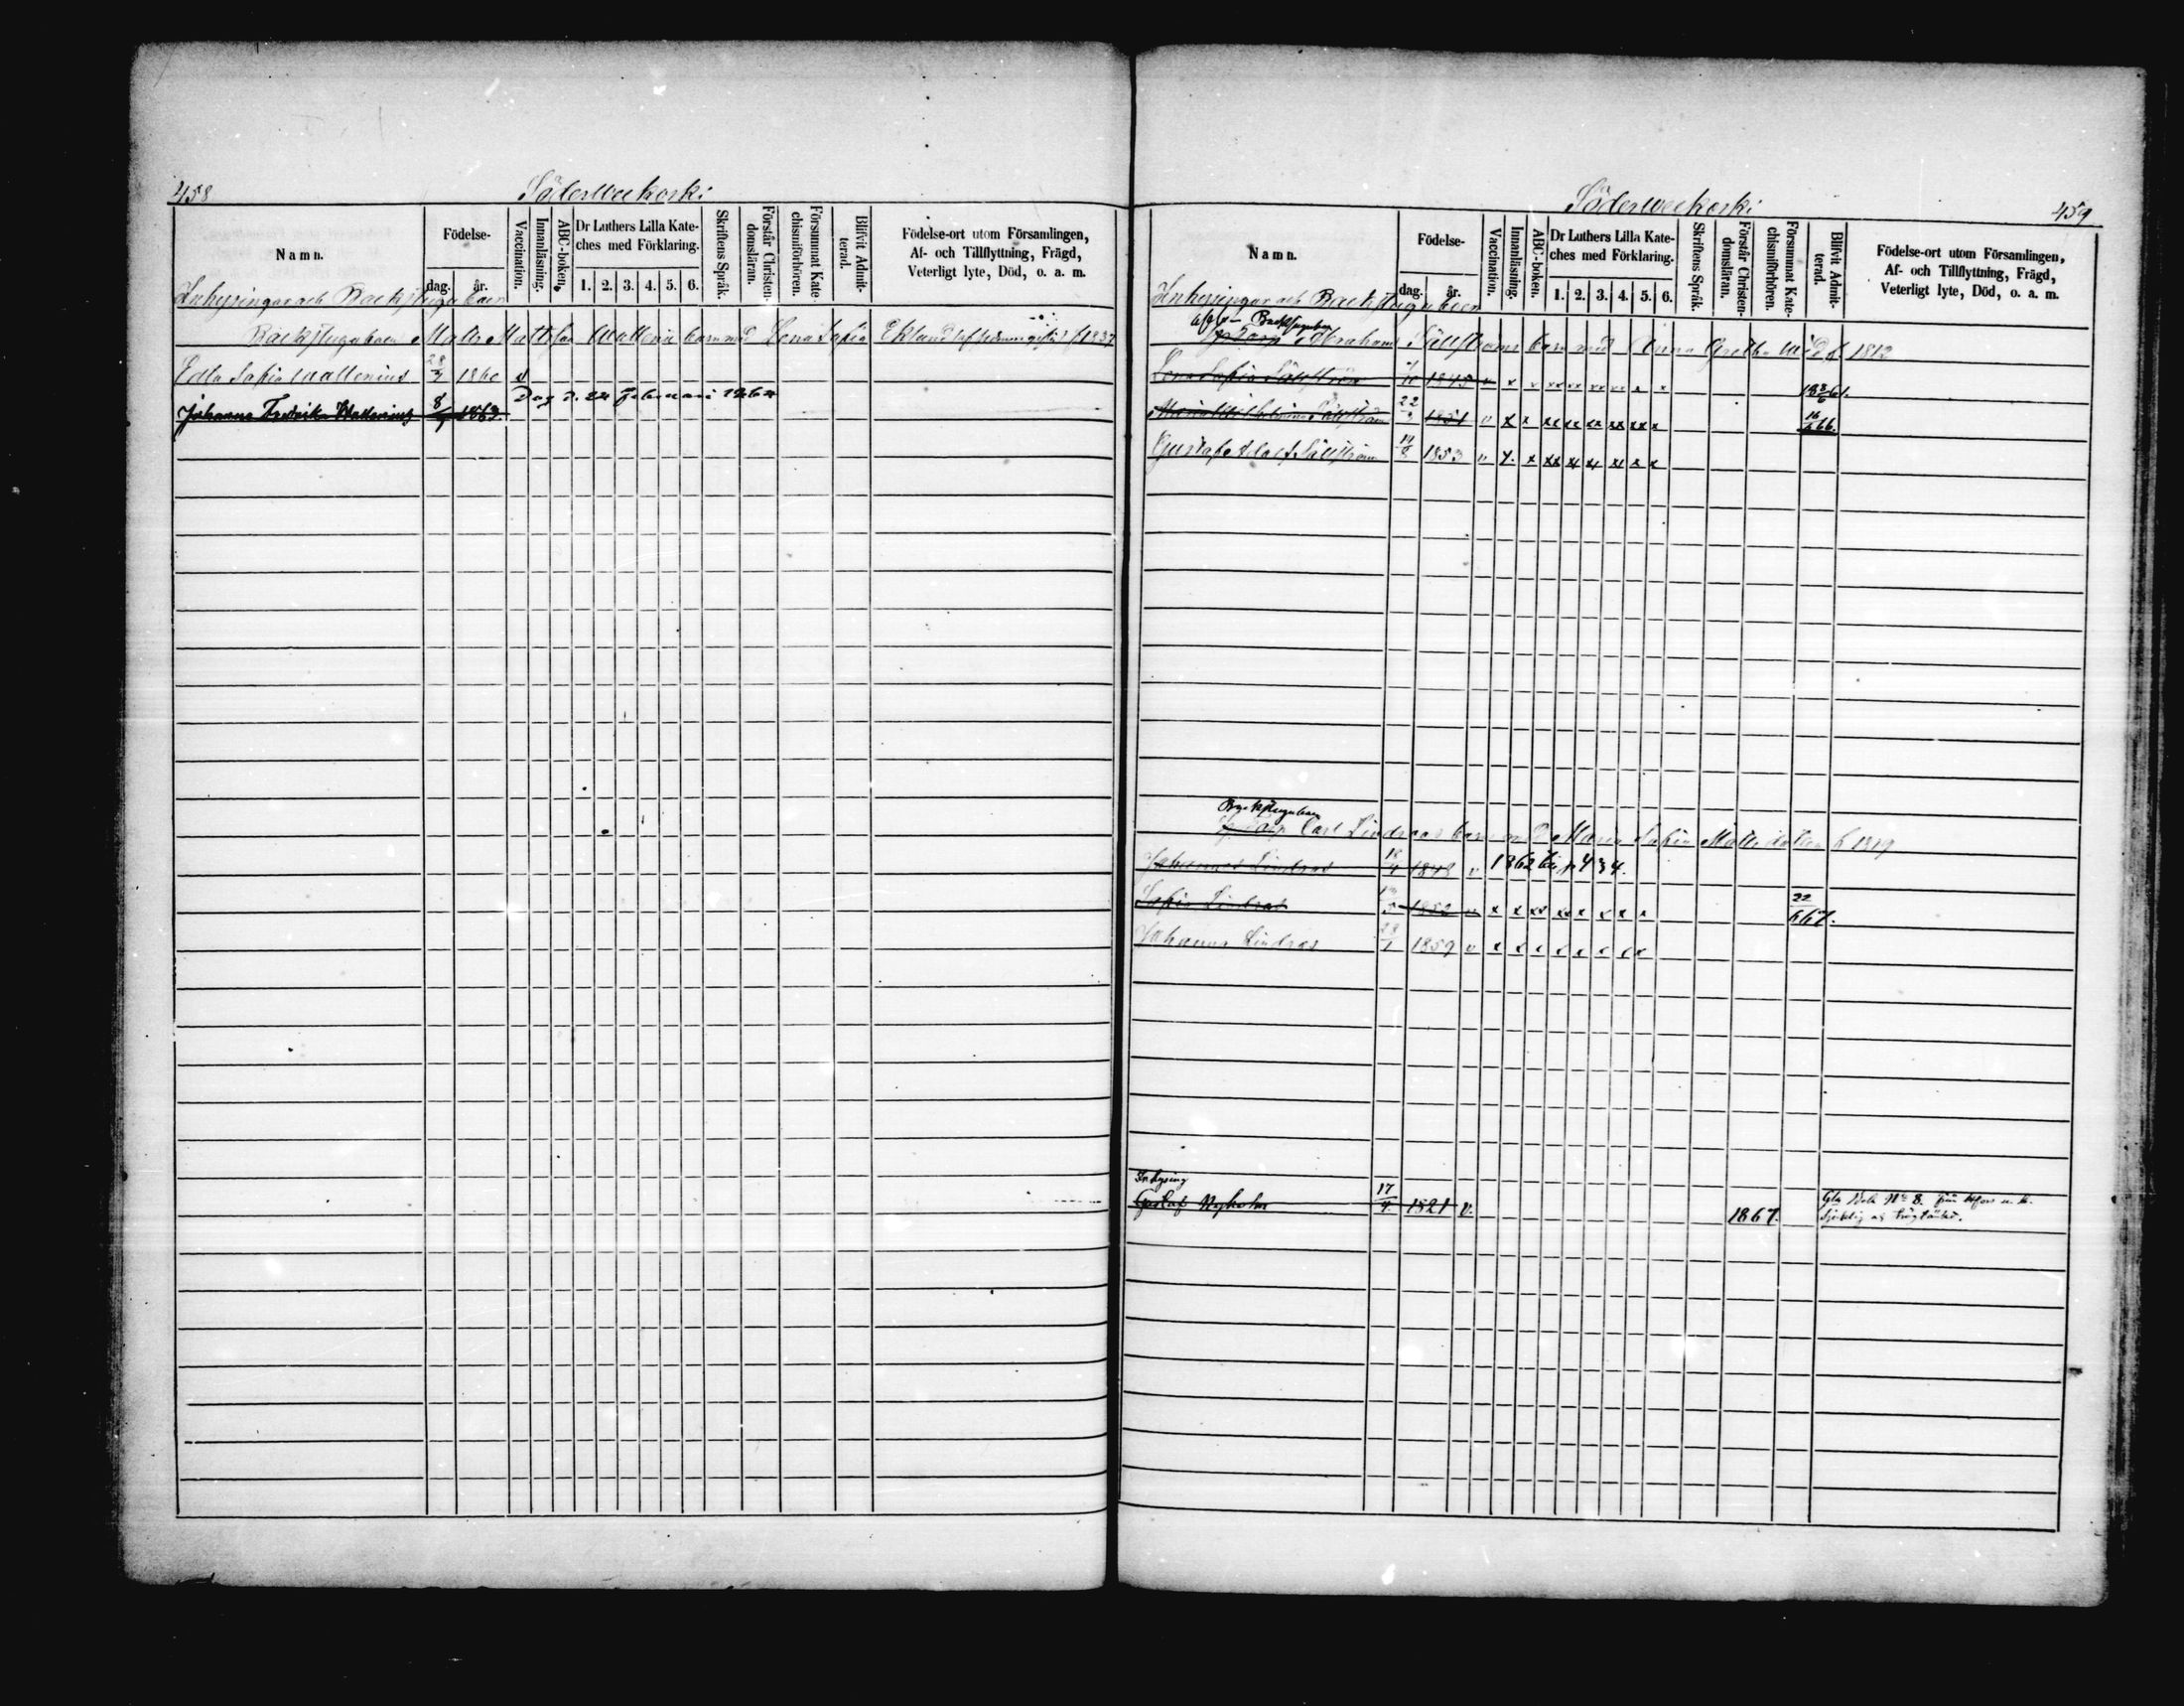 458
Söderweckoski
Namn.
Födelse-
dag.
år.
Vaccination.
Innanläsning.
ABC-boken.
Dr Luthers Lilla Kate-
ches med Förklaring.
1. 2. 3. 4. 5. 6.
Skriftens Språk.
Förstår Christen-
domsläran.
Försummat Kate-
chismiförhören.
Blifvit Admit-
terad.
Födelse-ort utom Församlingen,
Af- och Tillflyttning, Frägd,
Veterligt lyte, Död, o. a. m.
Inhysingar och Backstuguboer
Backstuguboen Matts Mattsson Wallenii barn med Lena Sofia Eklund f 1837
Edla Sofia Wallenius 28/7 1860 v
Johanna Fredrika Wallenius 8/7 1863. Dog d. 24 Februari 1864
459
Söderweckoski
Namn.
Födelse-
dag.
år.
Vaccination.
Innanläsning.
ABC-boken.
Dr Luthers Lilla Kate-
ches med Förklaring.
1. 2. 3. 4. 5. 6.
Skriftens Språk.
Förstår Christen-
domsläran.
Försummat Kate-
chismiförhören.
Blifvit Admit-
terad.
Födelse-ort utom Församlingen,
Af- och Tillflyttning, Frägd,
Veterligt lyte, Död, o. a. m.
Inhysingar och Backstuguboer
Backstugubon
Abraham Sällströms barn med Anna Gretha 1812
Lena Sofia Sällström 1845 v x v xx xx xx xx x x
22 1851 v x x xx xx xx xx xx x 16/6 66.
Gustaf Adolf Sällström 14/8 1853 v x x xx x x x x x
Backstugubon
Carl Lindroos barn med Maria Sofia f 1819
Johannes Lindros 18/4 1848 v 1862 till p 434.
Sofia Lindros 1852 v x x xx xx x x x x 22/6 67.
Johanna Lindros 28/1 1859 v x x x x x x x x
Inhysing
Gustaf Nyholm 17/4 1821 v. 1867.